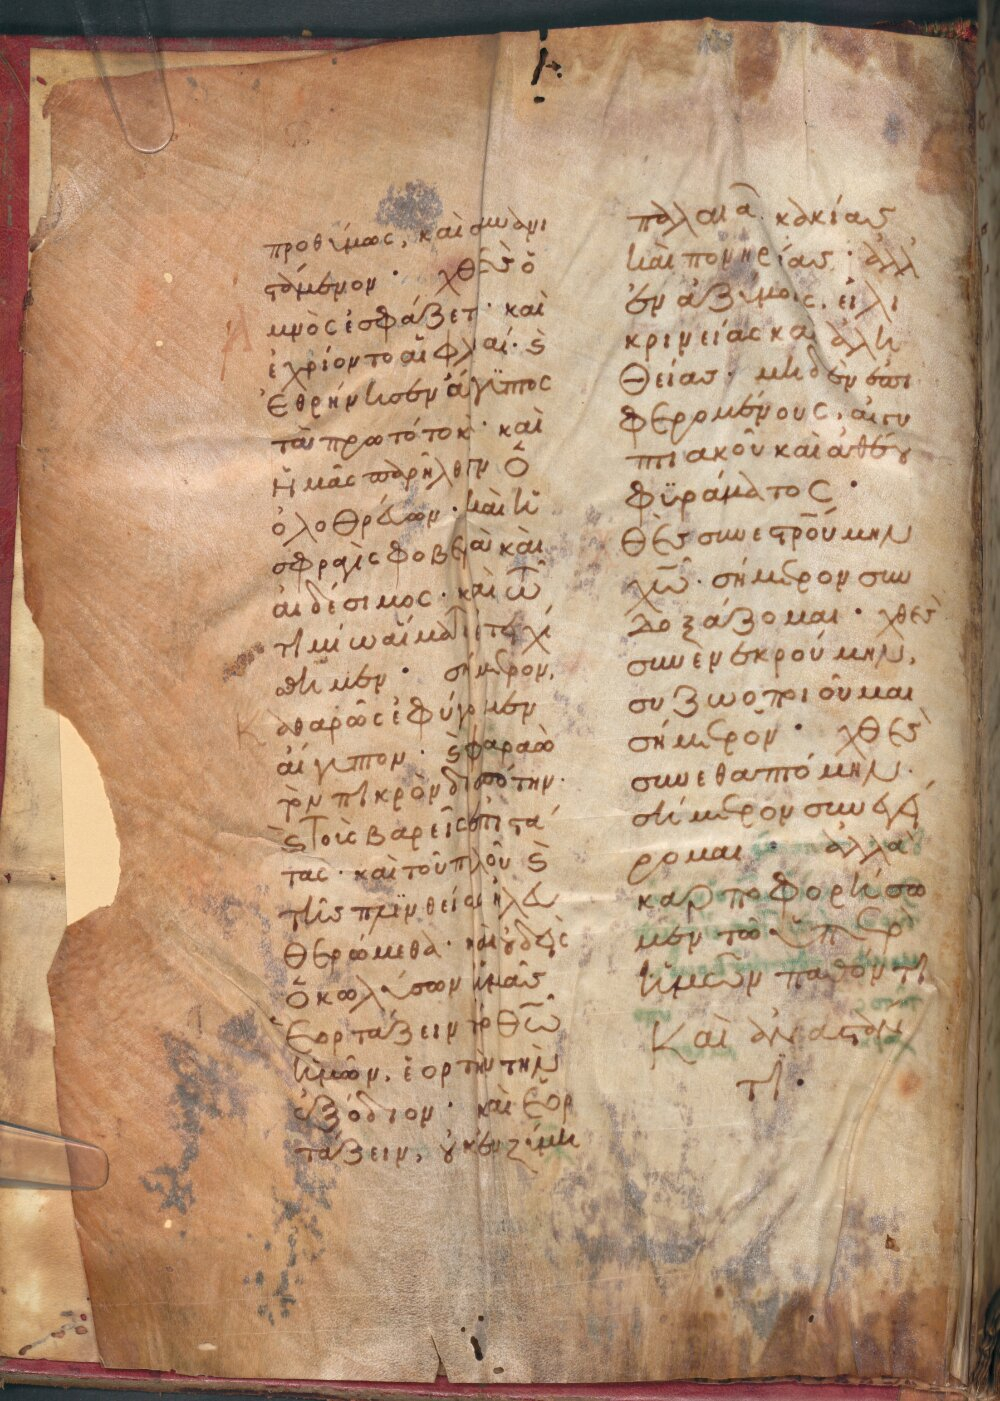 προθύμως, καὶ συνανι
στάμενον · χθὲς ὁ ἀ
μνὸς ἐσφάζετο · καὶ
ἐχρίοντο αἱ φλιαί · ϗ
ἐθρήνησεν αἴγυπτος
τὰ πρωτότοκα · καὶ
ἡμᾶς παρῆλθεν ὁ
ὀλοθρεύων · καὶ ἡ
σφραγὶς φοβερὰ καὶ
αἰδέσιμος · καὶ τῶ
τιμίω αἵματι ἐτειχί
σθημεν · σήμερον,
Καθαρῶς ἐφύγομεν
αἴγυπτον · ϗ φαραὼ
τὸν πικρὸν δεσπότην ·
ϗ τοὺς βαρεῖς ἐπιστά
τας · καὶ τοῦ πηλοῦ ϗ
τῆς πλινθείας ἠλευ
θερώμεθα · καὶ οὐδεὶς
ὁ κωλύσων ἡμᾶς
ἑορτάζειν τῶ θῶ
ἡμῶν, ἑορτὴν τὴν
ἐξόδιον · καὶ ἑορ
τάζειν, οὐκ ἐν ζύμη
παλαιᾶ κακίας
καὶ πονηρίας · ἀλλ'
ἐν ἀζύμοις, εἰλι
κρινείας καὶ ἀλη
θείας · μηδὲν ἐπι
φερομένους, αἰγυ
πτιακοῦ καὶ ἀθέου
φυράματος ·
χθὲς συνεσταυρούμην
χῶ · σήμερον συν
δοξάζομαι · χθὲς
συνενεκρούμην,
συζωοποιοῦμαι
σήμερον · χθὲς
συνεθαπτόμην ·
σήμερον συνεγεί
ρομαι · ἀλλὰ
καρποφορήσω
μεν τῶ ὑπὲρ
ἡμῶν παθόντι
Καὶ ἀναστάν
τι ·